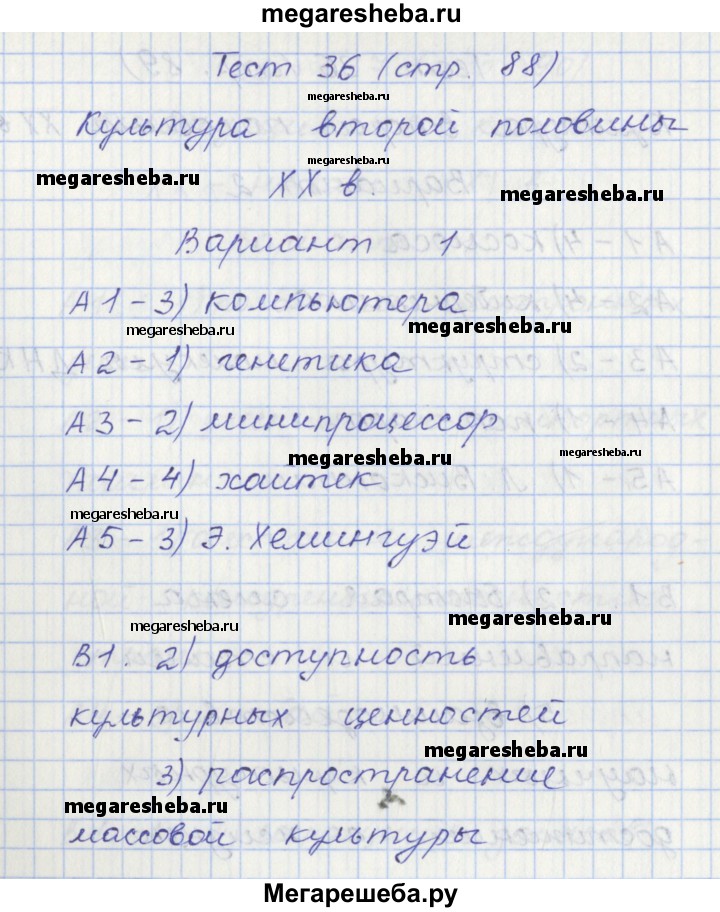 megaresheba.ru
Тест 36 (стр. 88)
megaresheba.ru
Культура второй половины
megaresheba.ru
megaresheba.ru
XX в.
megaresheba.ru
Вариант 1
А1 - 3) компьютера
megaresheba.ru
megaresheba.ru
А2 - 1) генетика
А3 - 2) минипроцессор
megaresheba.ru
megaresheba.ru
А4 - 4) хайтек
megaresheba.ru
А5 - 3) Э. Хемингуэй
megaresheba.ru
megaresheba.ru
В1. 2) доступность
культурных ценностей
megaresheba.ru
3) распространение
megaresheba.ru
массовой культуры
Мегарешеба.ру